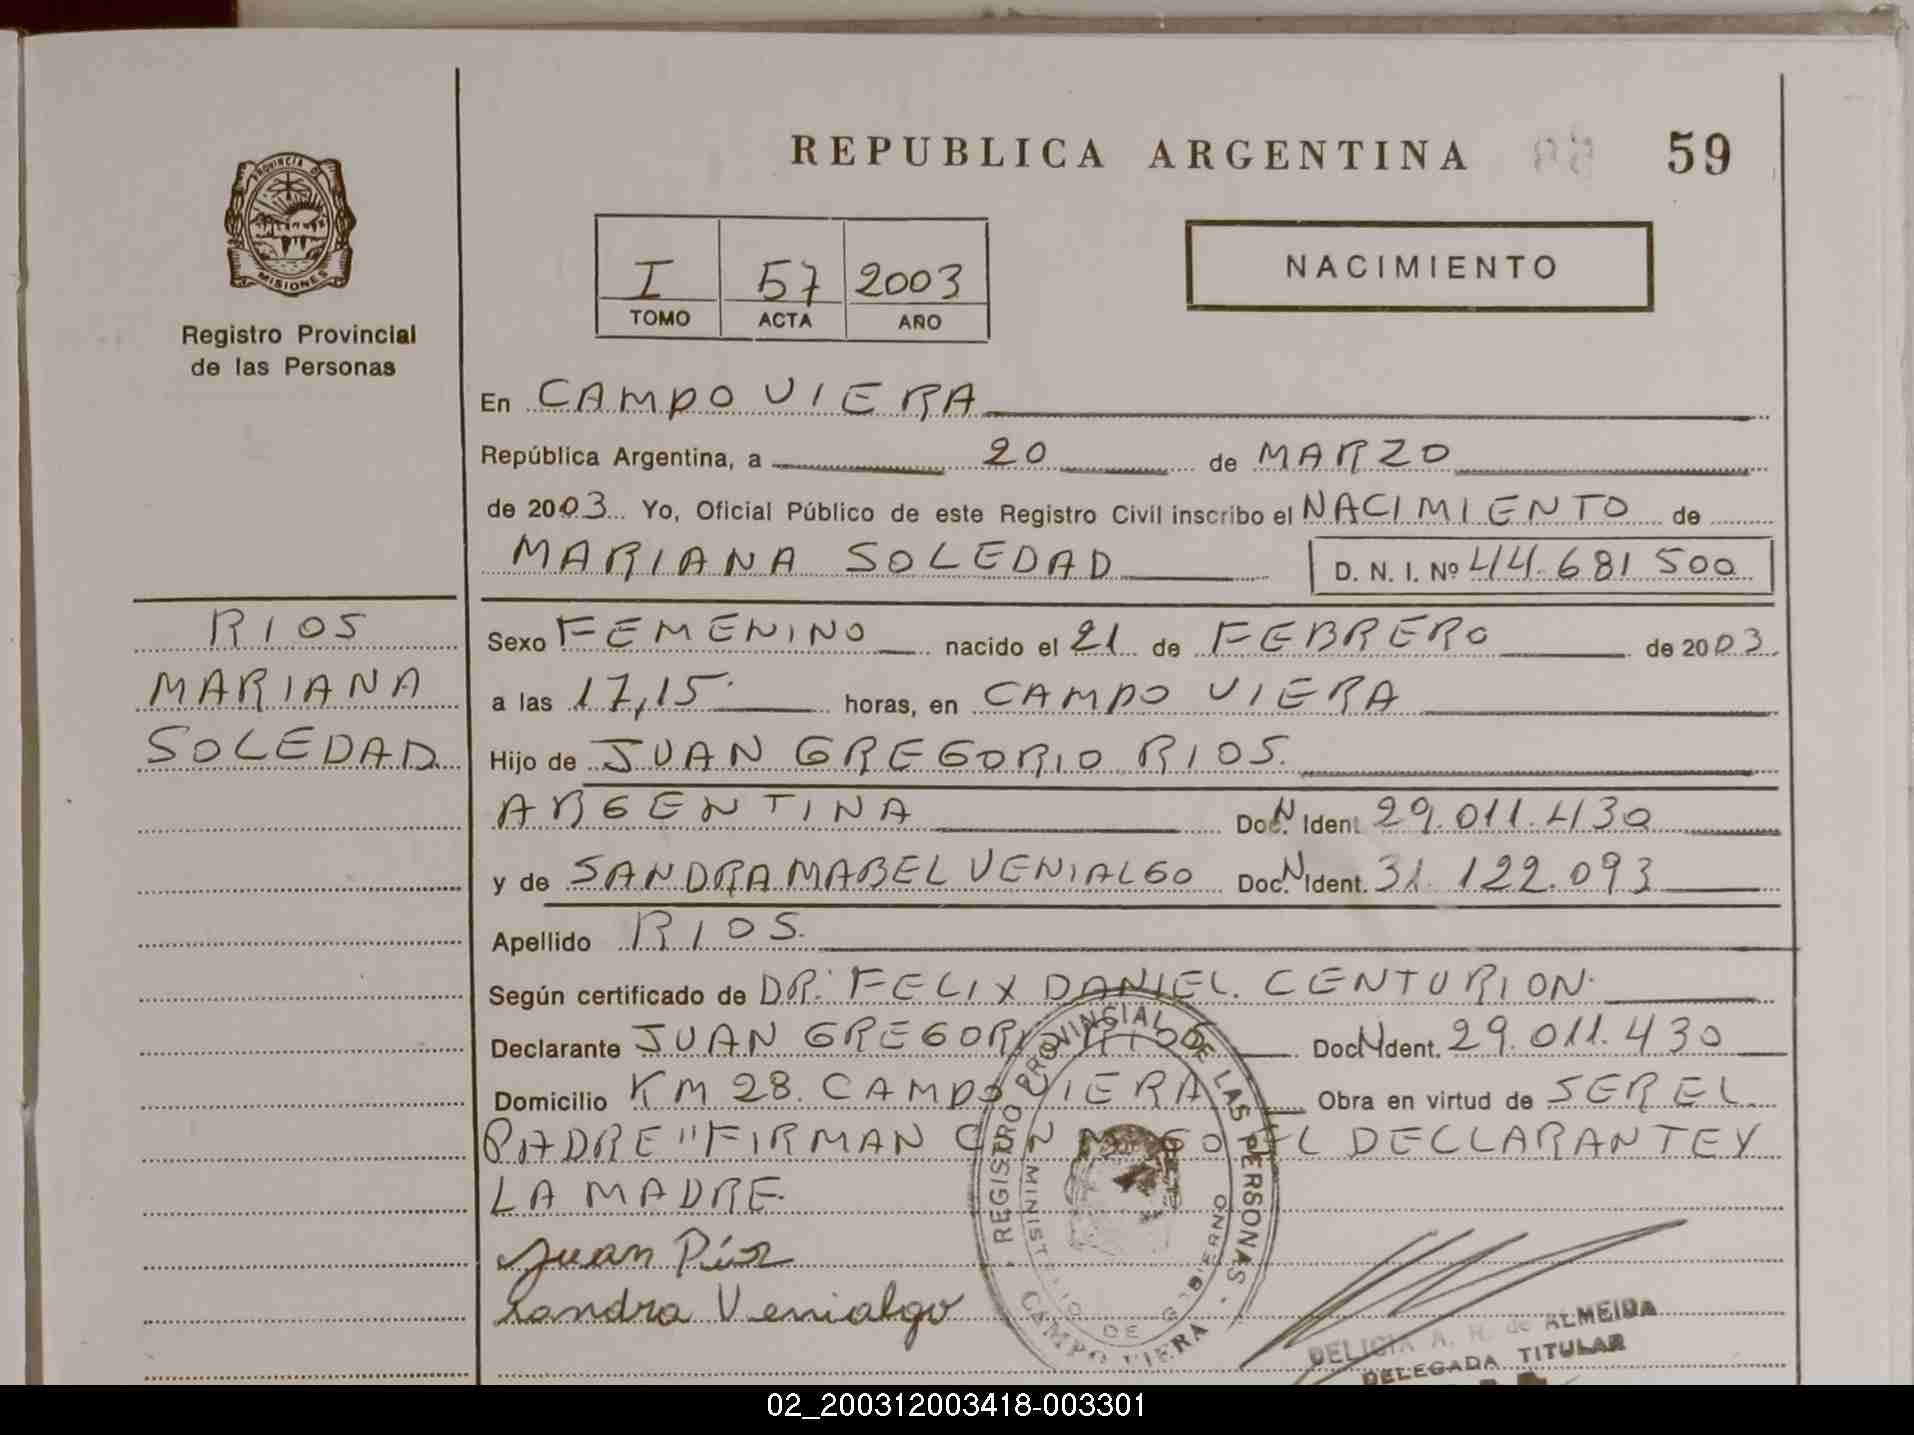 REPUBLICA ARGENTINA
59
PROVINCIA DE
MISIONES
Registro Provincial
de las Personas
I 57 2003
TOMO ACTA AÑO
NACIMIENTO
En CAMPO VIERA
República Argentina, a 20 de MARZO
de 2003 Yo, Oficial Público de este Registro Civil inscribo el NACIMIENTO de
MARIANA SOLEDAD D. N. I. Nº 44.681 500
RIOS
MARIANA
SOLEDAD
Sexo FEMENINO nacido el 21 de FEBRERO de 2003
a las 17,15 horas, en CAMPO VIERA
Hijo de JUAN GREGORIO RIOS.
ARGENTINA Doc. N Ident 29.011.430
y de SANDRA MABEL VENIALGO Doc. N Ident. 31.122.093
Apellido RIOS.
Según certificado de DR. FELIX DANIEL CENTURION.
Declarante JUAN GREGORIO RIOS Doc N Ident. 29.011.430
Domicilio KM 28. CAMPO VIERA Obra en virtud de SER EL
PADRE "FIRMAN CONMIGO EL DECLARANTE Y
LA MADRE.
Juan Ríos
Sandra Venialgo
REGISTRO PROVINCIAL DE LAS PERSONAS
MINISTERIO DE GOBIERNO
CAMPO VIERA
DELICIA A. H. de ALMEIDA
DELEGADA TITULAR
02_200312003418-003301